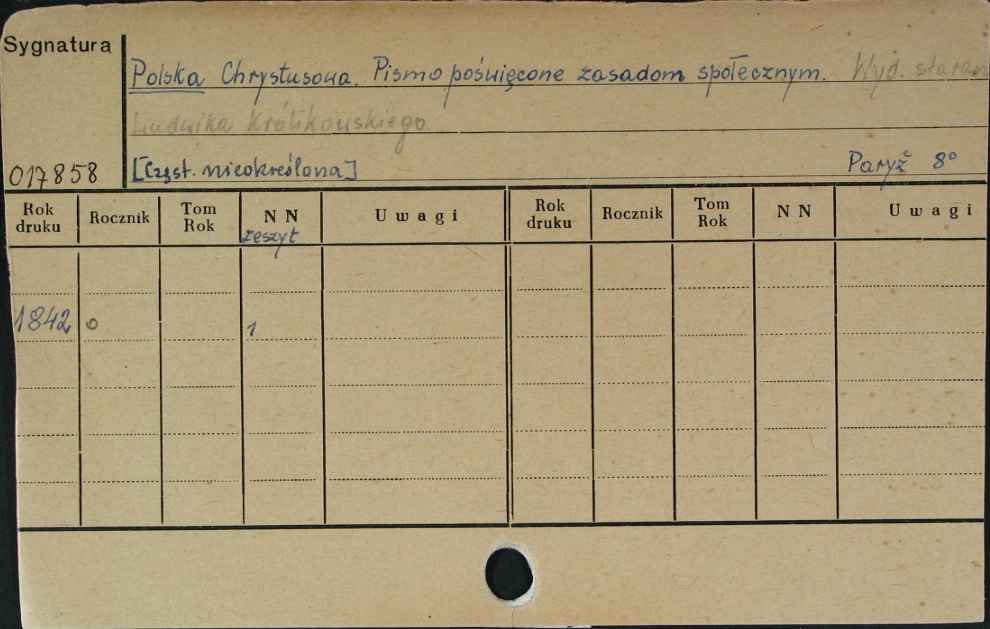 Sygnatura
Polska Chrystusowa. Pismo poświęcone zasadom społecznym. Wyd. staran
Ludwika Królikowskiego
017858 [Częst. nieokreślona] Paryż 8°
Rok druku Rocznik Tom Rok N N zeszyt Uwagi Rok druku Rocznik Tom Rok N N Uwagi
1842 0 1